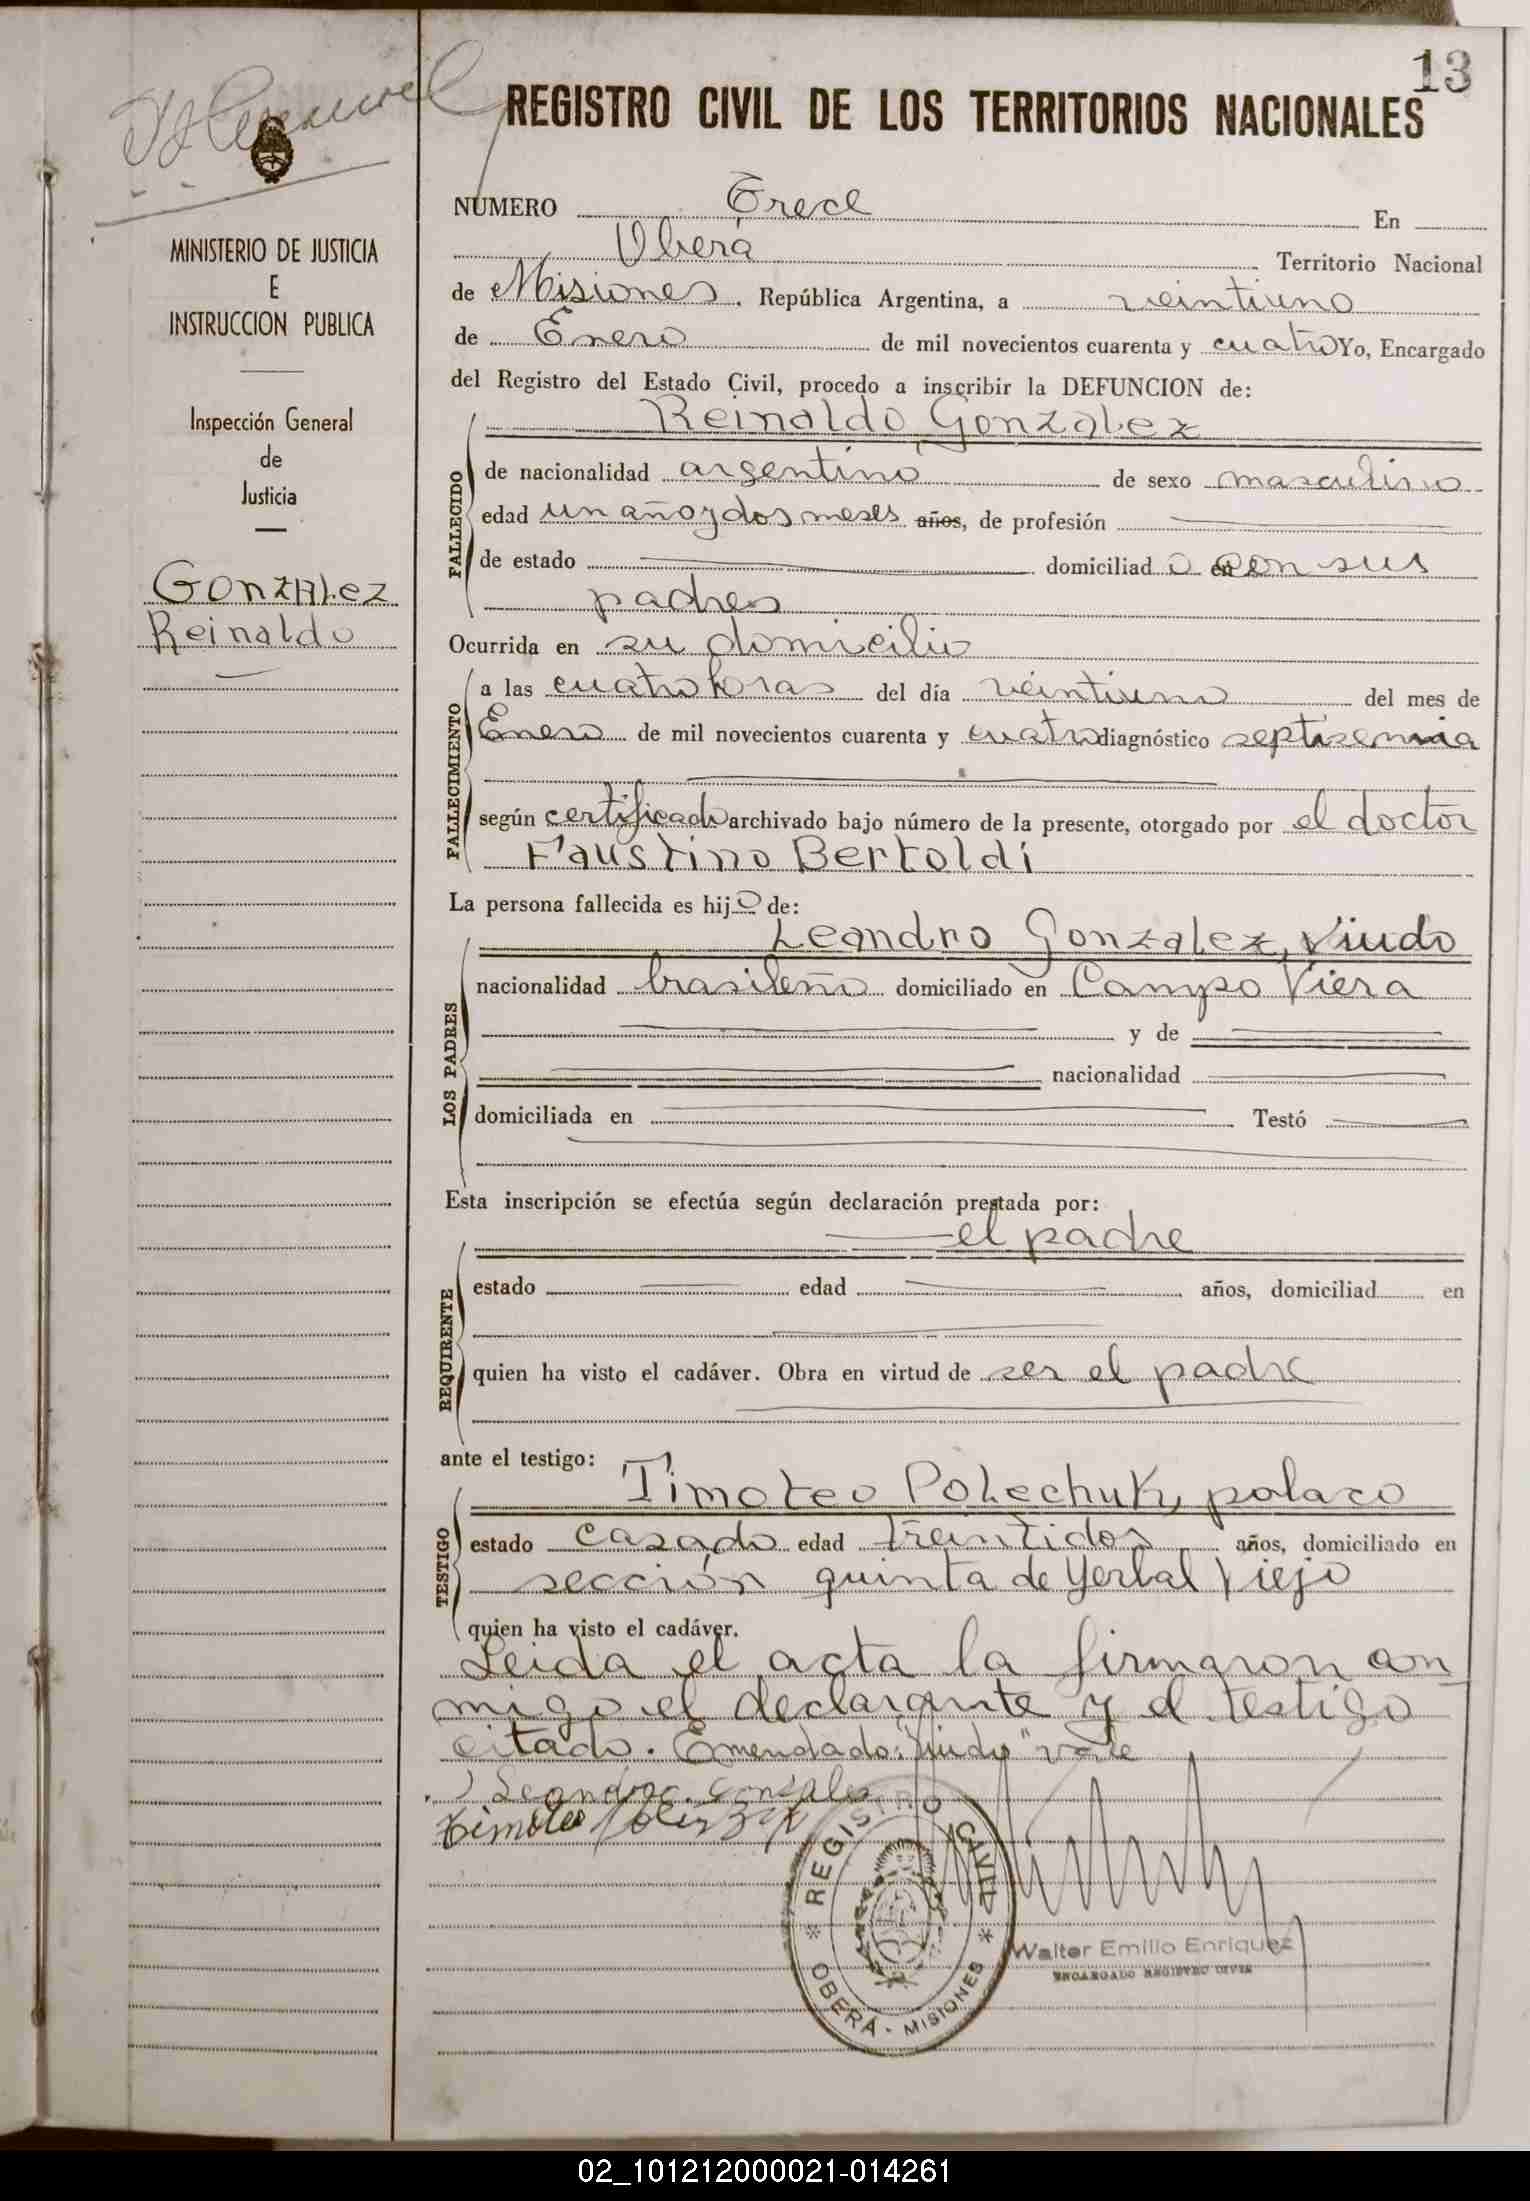 13
REGISTRO CIVIL DE LOS TERRITORIOS NACIONALES
MINISTERIO DE JUSTICIA
E
INSTRUCCION PUBLICA
Inspección General
de
Justicia
GonzALez
Reinaldo
NUMERO Trece En
Oberá Territorio Nacional
de Misiones. República Argentina, a veintiuno
de Enero de mil novecientos cuarenta y cuatro Yo, Encargado
del Registro del Estado Civil, procedo a inscribir la DEFUNCION de:
Reinaldo Gonzalez
FALLECIDO
de nacionalidad argentino de sexo masculino
edad un año y dos meses años, de profesión
de estado domiciliad o en con sus
padres
Ocurrida en su domicilio
FALLECIMIENTO
a las cuatro horas del día veintiuno del mes de
Enero de mil novecientos cuarenta y cuatro diagnóstico septisemia
según certificado archivado bajo número de la presente, otorgado por el doctor
Faustino Bertoldi
La persona fallecida es hijo de:
LOS PADRES
Leandro Gonzalez, Viudo
nacionalidad brasileño domiciliado en Campo Viera
y de
nacionalidad
domiciliada en Testó
Esta inscripción se efectúa según declaración prestada por:
REQUIRENTE
el padre
estado edad años, domiciliad en
quien ha visto el cadáver. Obra en virtud de ser el padre
ante el testigo:
TESTIGO
Timoteo Polechuk, polaco
estado casado edad treintidos años, domiciliado en
sección quinta de Yerbal Viejo
quien ha visto el cadáver.
Leida el acta la firmaron con
migo el declarante y el testigo
citado. Emendado: "Viudo" vale
Leandro Gonzales
Timoteo
REGISTRO CIVIL
OBERÁ - MISIONES
Walter Emilio Enriquez
ENCARGADO REGISTRO CIVIL
02_101212000021-014261